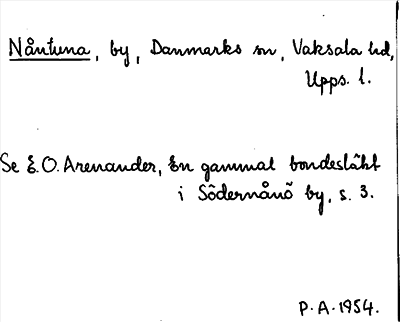 Nåntuna, by, Danmarks sn, Vaksala hd,
Upps. l.
Se E.O. Arenander, En gammal bondesläkt
i Södernånö by, s. 3.
P.A. 1954.